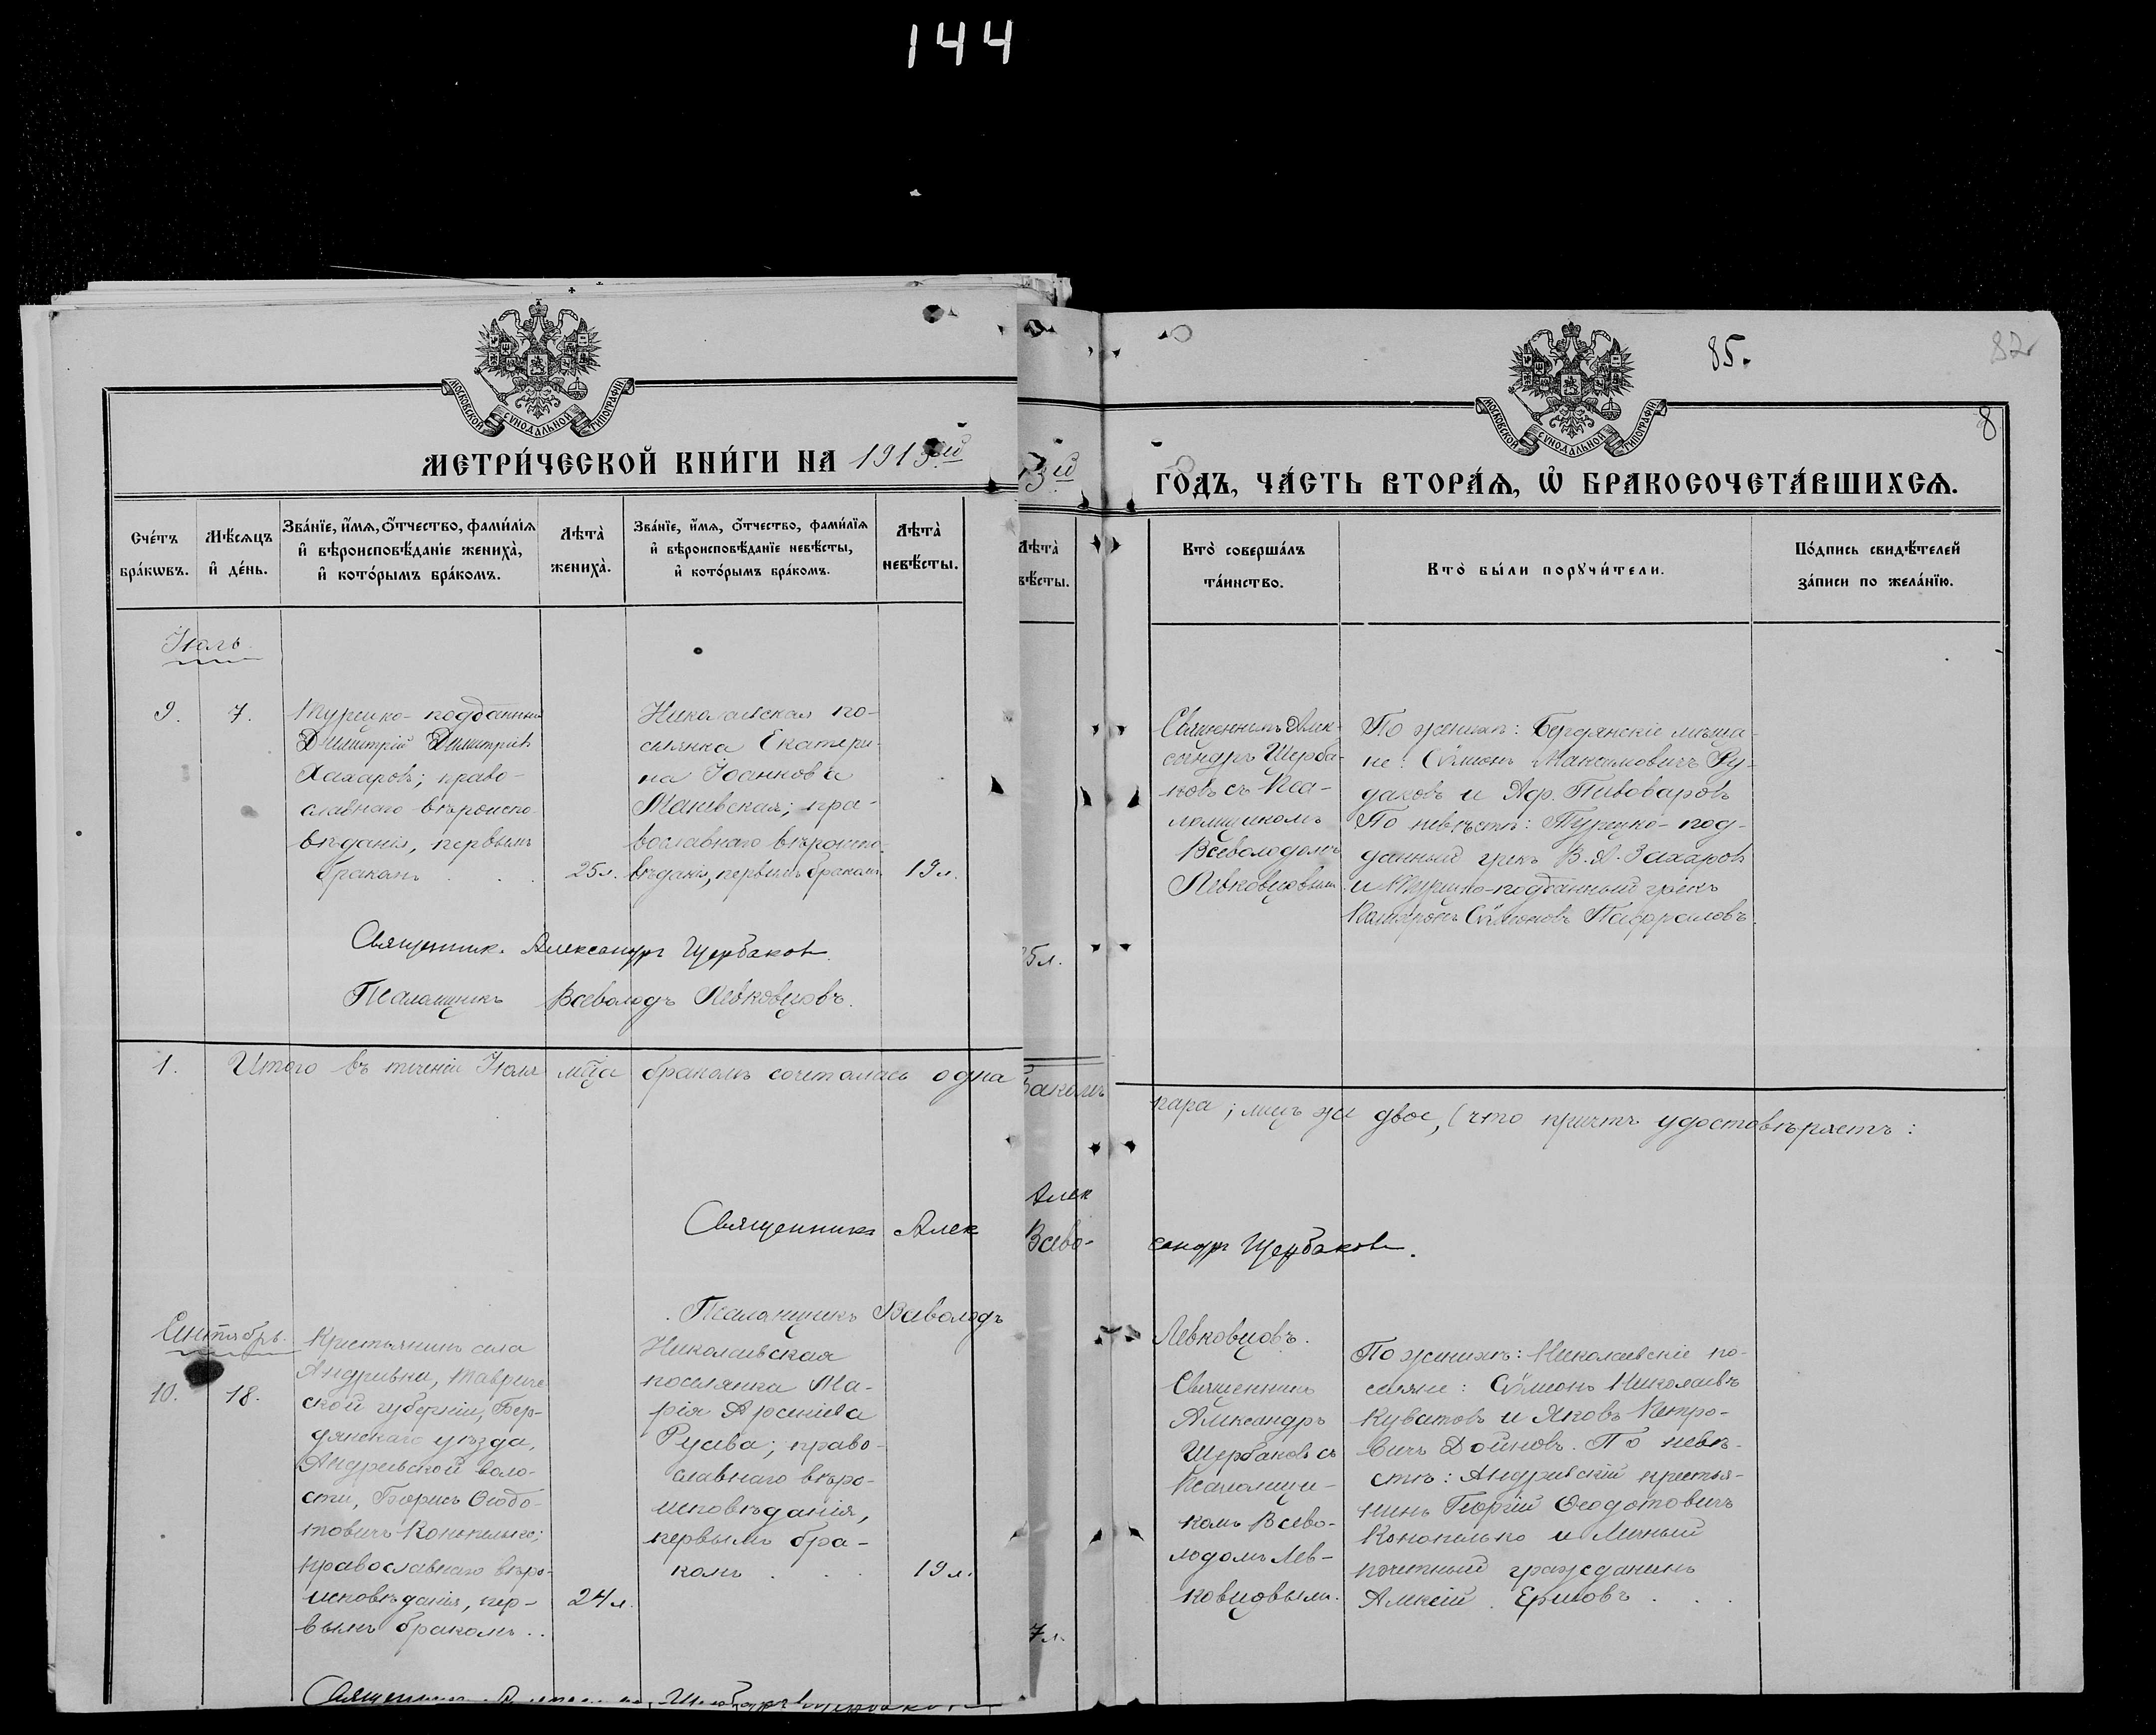 144
85.
82
8
МОСКОВСКОЙ СѴНОДАЛЬНОЙ ТИПОГРАФІИ
МОСКОВСКОЙ СѴНОДАЛЬНОЙ ТИПОГРАФІИ
МЕТРИ́ЧЕСКОЙ КНИ́ГИ НА 1913ый
13ый
ГОДЪ, ЧА́СТЬ ВТОРА́Ѧ, Ѡ҆ БРАКОСОЧЕТА́ВШИХСѦ.
Сче́тъ бра́кѡвъ.
Мѣ́сѧцъ и҆ де́нь.
Зва́нїе, и҆́мѧ, ѻ҆́тчество, фами́лїѧ
и҆ вѣроисповѣ́данїе жениха̀,
и҆ кото́рымъ бра́комъ.
Лѣта̀ жениха̀.
Зва́нїе, и҆́мѧ, ѻ҆́тчество, фами́лїѧ
и҆ вѣроисповѣ́данїе невѣ́сты,
и҆ кото́рымъ бра́комъ.
Лѣта̀ невѣ́сты.
Лѣта̀
вѣ́сты.
Кто̀ соверша́лъ
та́инство.
Кто̀ бы́ли порꙋчи́тели.
По́дпись свидѣ́телей
за́писи по жела́нїю.
Іюль.
9.
7.
Турецко-подданный
Димитрій Димитріевъ
Захаровъ; право-
славнаго вѣроиспо-
вѣданія, первымъ
бракомъ . . .
25 л.
Николаевская по-
селянка Екатери-
на Іоаннова
Маневская; пра-
вославнаго вѣроиспо-
вѣданія, первымъ бракомъ.
19 л.
Священникъ Алек-
сандръ Щерба-
ковъ съ Пса-
ломщикомъ
Всеволодомъ
Левковцовымъ.
По женихѣ: Бердянскіе мѣща-
не: Сѵмеонъ Максимовичъ Ру-
даковъ и Адр. Пивоваровъ
По невѣстѣ: Турецко-под-
данный грекъ В. Д. Захаровъ
и Турецко-подданный грекъ
Сѵмеоновъ
Священникъ Александръ Щербаковъ.
Псаломщикъ Всеволодъ Левковцовъ.
25 л.
1.
Итого въ теченіи Іюля мѣсяца бракомъ сочеталась одна
бракомъ
пара; лицъ же двое, (что причтъ удостовѣряетъ:
Священникъ Алек
Алек
сандръ Щербаковъ.
Псаломщикъ Всеволодъ
Всево-
Левковцовъ.
Сентябрь.
10.
18.
Крестьянинъ села
Андреевки, Тавриче-
ской губерніи, Бер-
дянскаго уѣзда,
Андреевской воло-
сти, Борисъ Ѳеодо-
товичъ Конопелько;
православнаго вѣро-
исповѣданія, пер-
вымъ бракомъ . .
24 л.
Николаевская
поселянка Ма-
рія Арсеніева
Русева; право-
славнаго вѣро-
исповѣданія,
первымъ бра-
комъ . . .
19 л.
7 л.
Священникъ
Александръ
Щербаковъ съ
Псаломщи-
комъ Всево-
лодомъ Лев-
ковцовымъ.
По женихѣ: Николаевскіе по-
селяне: Сѵмеонъ Николаевъ
Куватовъ и Яковъ Петро-
вичъ Дойновъ. По невѣ-
стѣ: Андреевскій крестья-
нинъ Георгій Ѳеодотовичъ
Конопелько и Личный
почетный гражданинъ
Алексій Ершовъ . . .
Священникъ